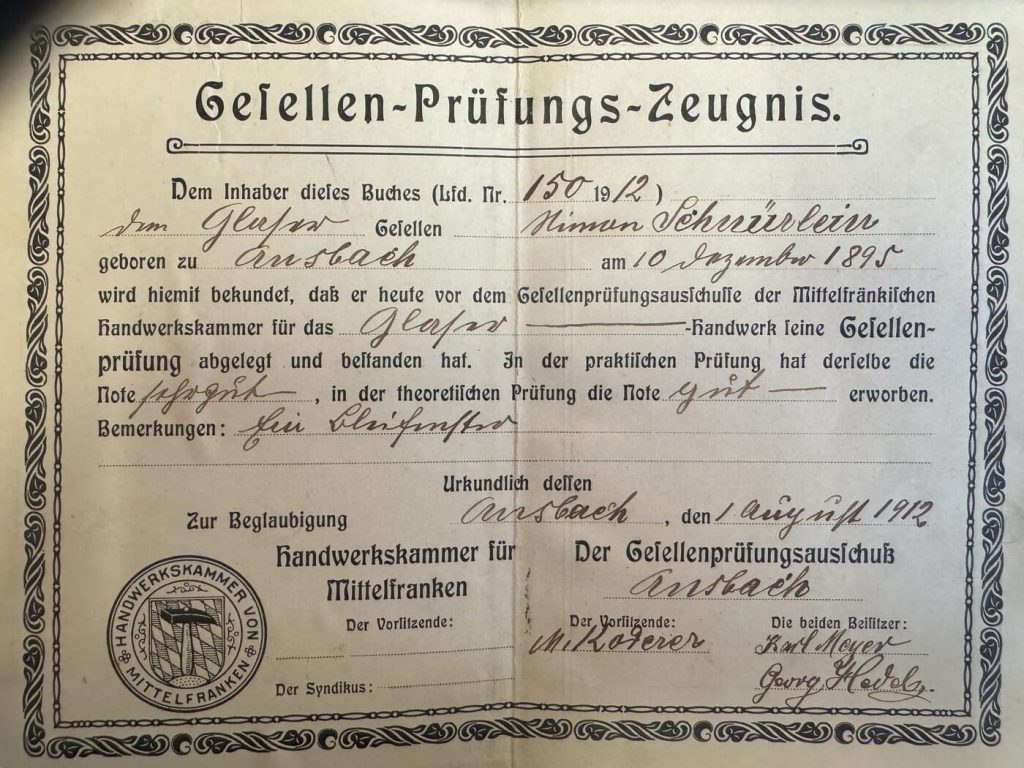 Gesellen-Prüfungs-Zeugnis.
Dem Inhaber dieses Buches (Lfd. Nr. 150 1912)
dem Glaser Gesellen Simon Schnürlein
geboren zu Ansbach am 10 Dezember 1895
wird hiemit bekundet, daß er heute vor dem Gesellenprüfungsausschusse der Mittelfränkischen
Handwerkskammer für das Glaser -Handwerk seine Gesellen-
prüfung abgelegt und bestanden hat. In der praktischen Prüfung hat derselbe die
Note sehrgut, in der theoretischen Prüfung die Note gut erworben.
Bemerkungen: Ein Bleifenster
Urkundlich dessen
Zur Beglaubigung Ansbach, den 1 August 1912
Handwerkskammer für Mittelfranken
Der Gesellenprüfungsausschuß
Ansbach
Der Vorsitzende:
Der Vorsitzende:
Die beiden Beisitzer:
M. Koderer
Karl Meyer
Georg
Der Syndikus:
HANDWERKSKAMMER VON MITTELFRANKEN